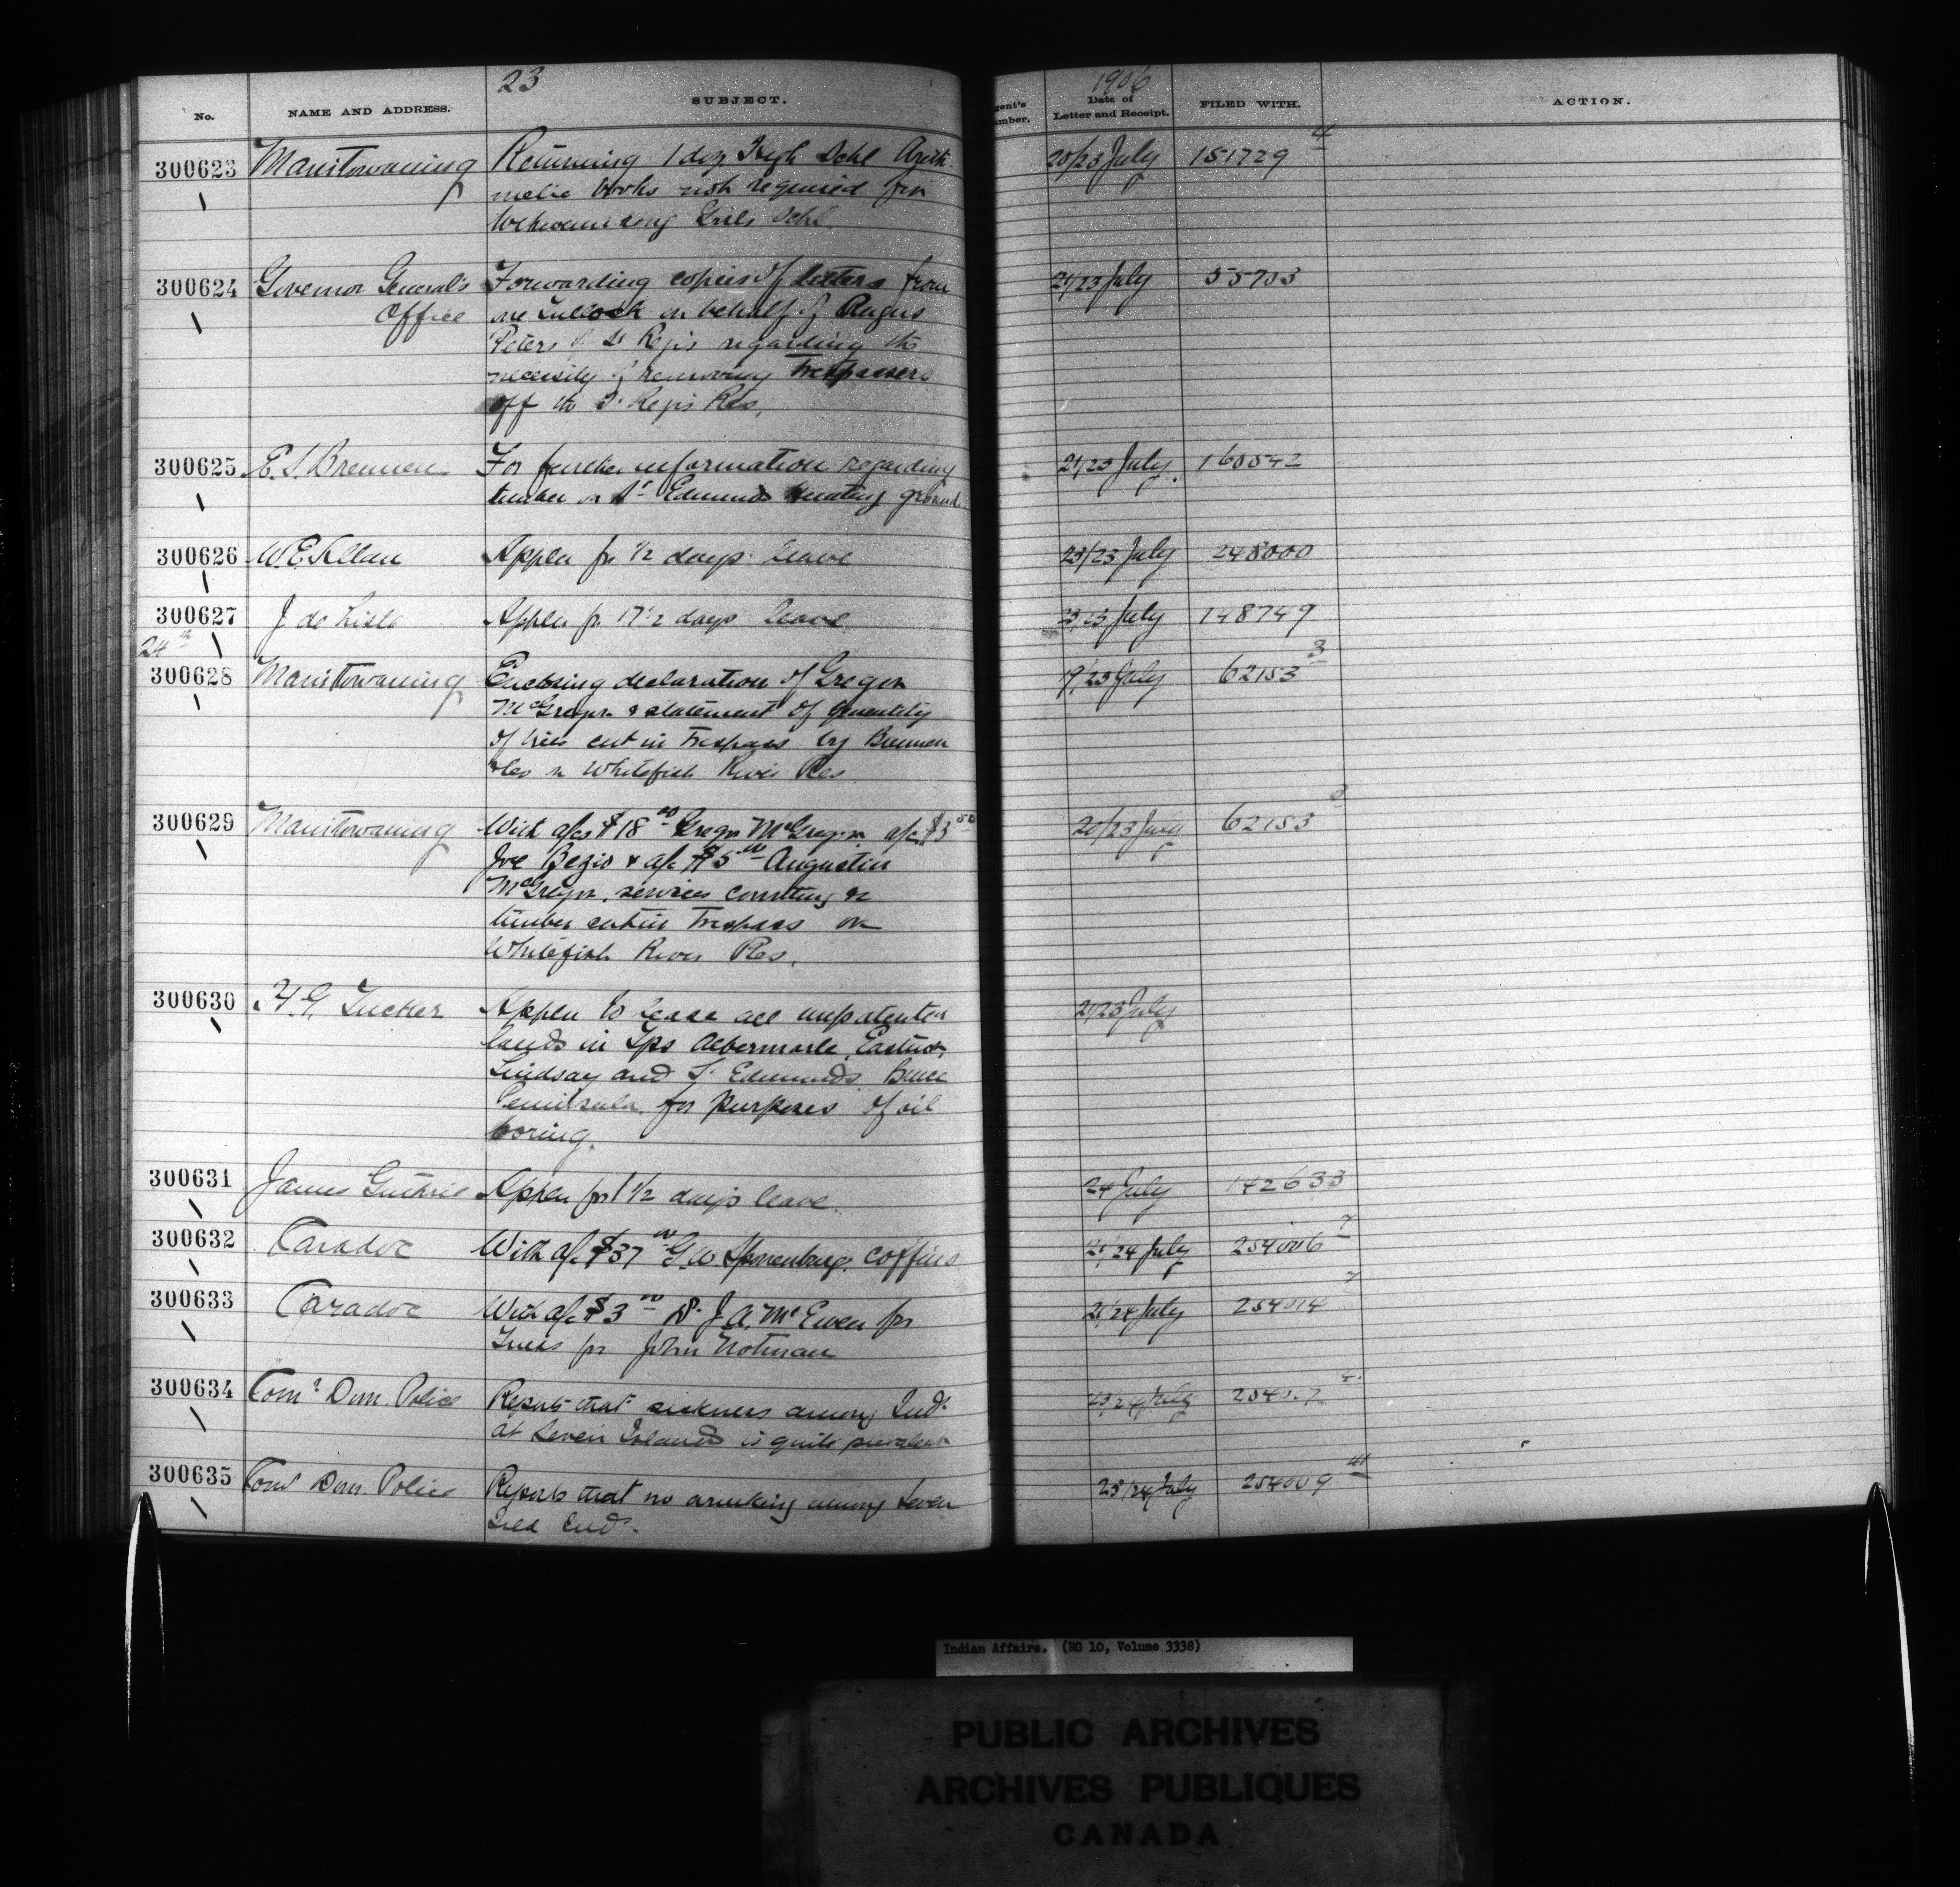 23
1906
No.
NAME AND ADDRESS.
SUBJECT.
gent's
umber.
Date of
Letter and Receipt.
FILED WITH.
ACTION.
300623 Manitowaning Returning 1 doz High Schl Arith- 20/23 July 151729 4
metic books not required for
Wikwemikong Girls Schl.
300624 Governor General's Forwarding copies of letters from 21/23 July 55703
Office Tullock on behalf of Angus
Peters of St Regis regarding the
necessity of removing Trespassers
off the St Regis Res.
300625 E. S. Brennen For further information regarding 21/23 July 160542
timber on St Edmunds Hunting ground
300626 W. E. Allan Appln for 1/2 days leave 23/23 July 248000
300627 J de Lisle Appln fr 17 1/2 days leave 23/23 July 148749
24th
300628 Manitowaning Enclosing declaration of Gregor 19/23 July 62153 3
McGregor & statement of quantity
of ties cut in Trespass by Brennen
on Whitefish River Res
300629 Manitowaning With a/cs $18 00 Gregor McGregor a/c $3 50 20/23 July 62153
Joe Begio & a/c $5 00 Augustin
McGregor, services counting &c
timber cut in Trespass on
Whitefish River Res.
300630 H. G. Tucker Appln to lease all unpatented 21/23 July
lands in Tps Albermarle, Eastnor,
Lindsay and St Edmunds, Bruce
Peninsula, for purposes of oil
boring.
300631 James Guthrie Appln for 1 1/2 days leave. 24 July 142633
300632 Caradoc With a/c $37 00 G. W. coffins 21/24 July 254006 7
300633 Caradoc With a/c $3 00 Dr J. A. McEwen for 21/24 July 254014 7
Truss for John Notman
300634 Comr Dom. Police Reports that sickness among Inds 23/24 July
at Seven Islands is quite prevalent
300635 Comr Dom. Police Reports that no drinking among Seven 23/24 July 254009 41
Isld Inds.
Indian Affairs. (RG 10, Volume 3338)
PUBLIC ARCHIVES
ARCHIVES PUBLIQUES
CANADA